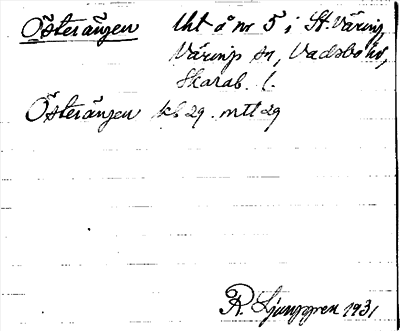 Österängen lht å nr 5 i St. Väring,
Värings sn, Vadsbo hd,
Skarab. l.
Österängen kb 29. mtl 29
R. Ljunggren 1931